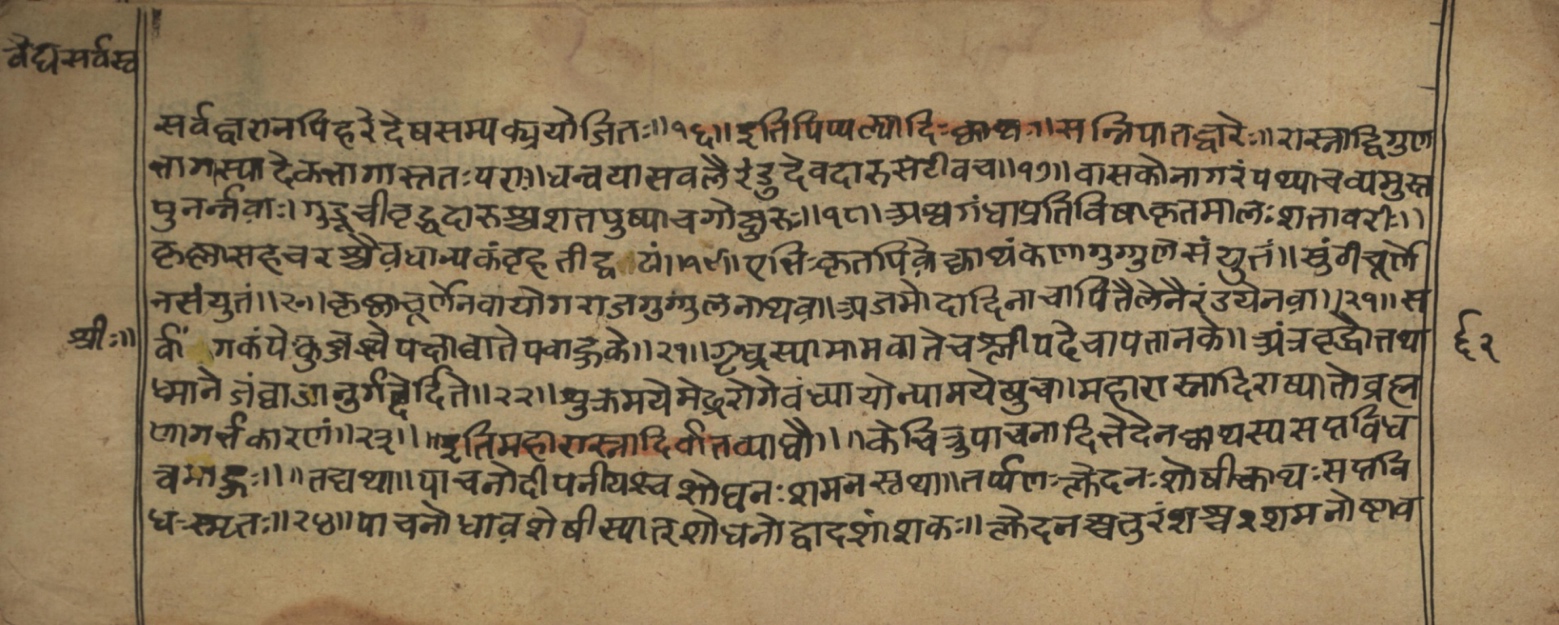 वैद्यसर्वस्व
सर्वद्वरानपिहरेदेषसम्यक्प्रयोजितः॥१६॥इतिपिप्पल्यादिःक्वाथः॥सन्निपातद्वारेः॥रास्नाद्विगुण
भागास्यादेकभागास्ततःपराः॥धन्वयासवलैरंडुदेवदारुसटीवच॥१७॥वासकोनागरंपथ्याचव्यमुस्त
पुनर्न्नवाः।गुडूचीवृद्धदारुश्चशतपुष्पाचगोक्षुरुः॥१८॥अश्वगंधाप्रतिविषाकृतमालःशतावरीः॥
कृष्णासहचरश्चैवधान्यकंवृहतीद्वयं॥१९॥एभिःकृतपिवेक्वाथंकणागुग्गुलसंयुतं॥सुंठीचूर्णे
नसंयुतं॥२०॥कृष्णाचूर्णेनवायोगराजगुग्गुलनाथवा॥अजमोदादिनाचापितैलेनैरंडयेनवा॥२१॥स
र्वांगकंपेकुब्जत्वेपक्षाघातेपवाहुके॥२१॥गृध्रस्यामामवातेचश्लीपदेचापतानके॥अंत्रवृद्धौतथा
ध्मानेजंघाजानुर्गदेर्दिते॥२२॥शुक्रमयेमेढ्ररोगेवंध्यायोन्यामयेषुच॥महारास्नादिराख्यातोव्रह्म
णागर्भकारणं॥२३॥॥इतिमहारास्नादिर्वातव्याधौ॥॥केचित्रुपाचनादिभेदेनक्वाथस्यसप्तविध
त्वमाहुः॥॥तद्यथा॥पाचनोदीपनीयश्चशोधनःशमनस्तथा॥तर्प्पणःक्लेदनःशोषीक्वाथःसप्तवि
धःस्मृतः॥२४॥पाचनोधावशेषीस्यात्शोधनोद्वादशांशकः॥क्लेदनश्चतुरंशश्चशमनोष्टाव
श्रीः॥
६२